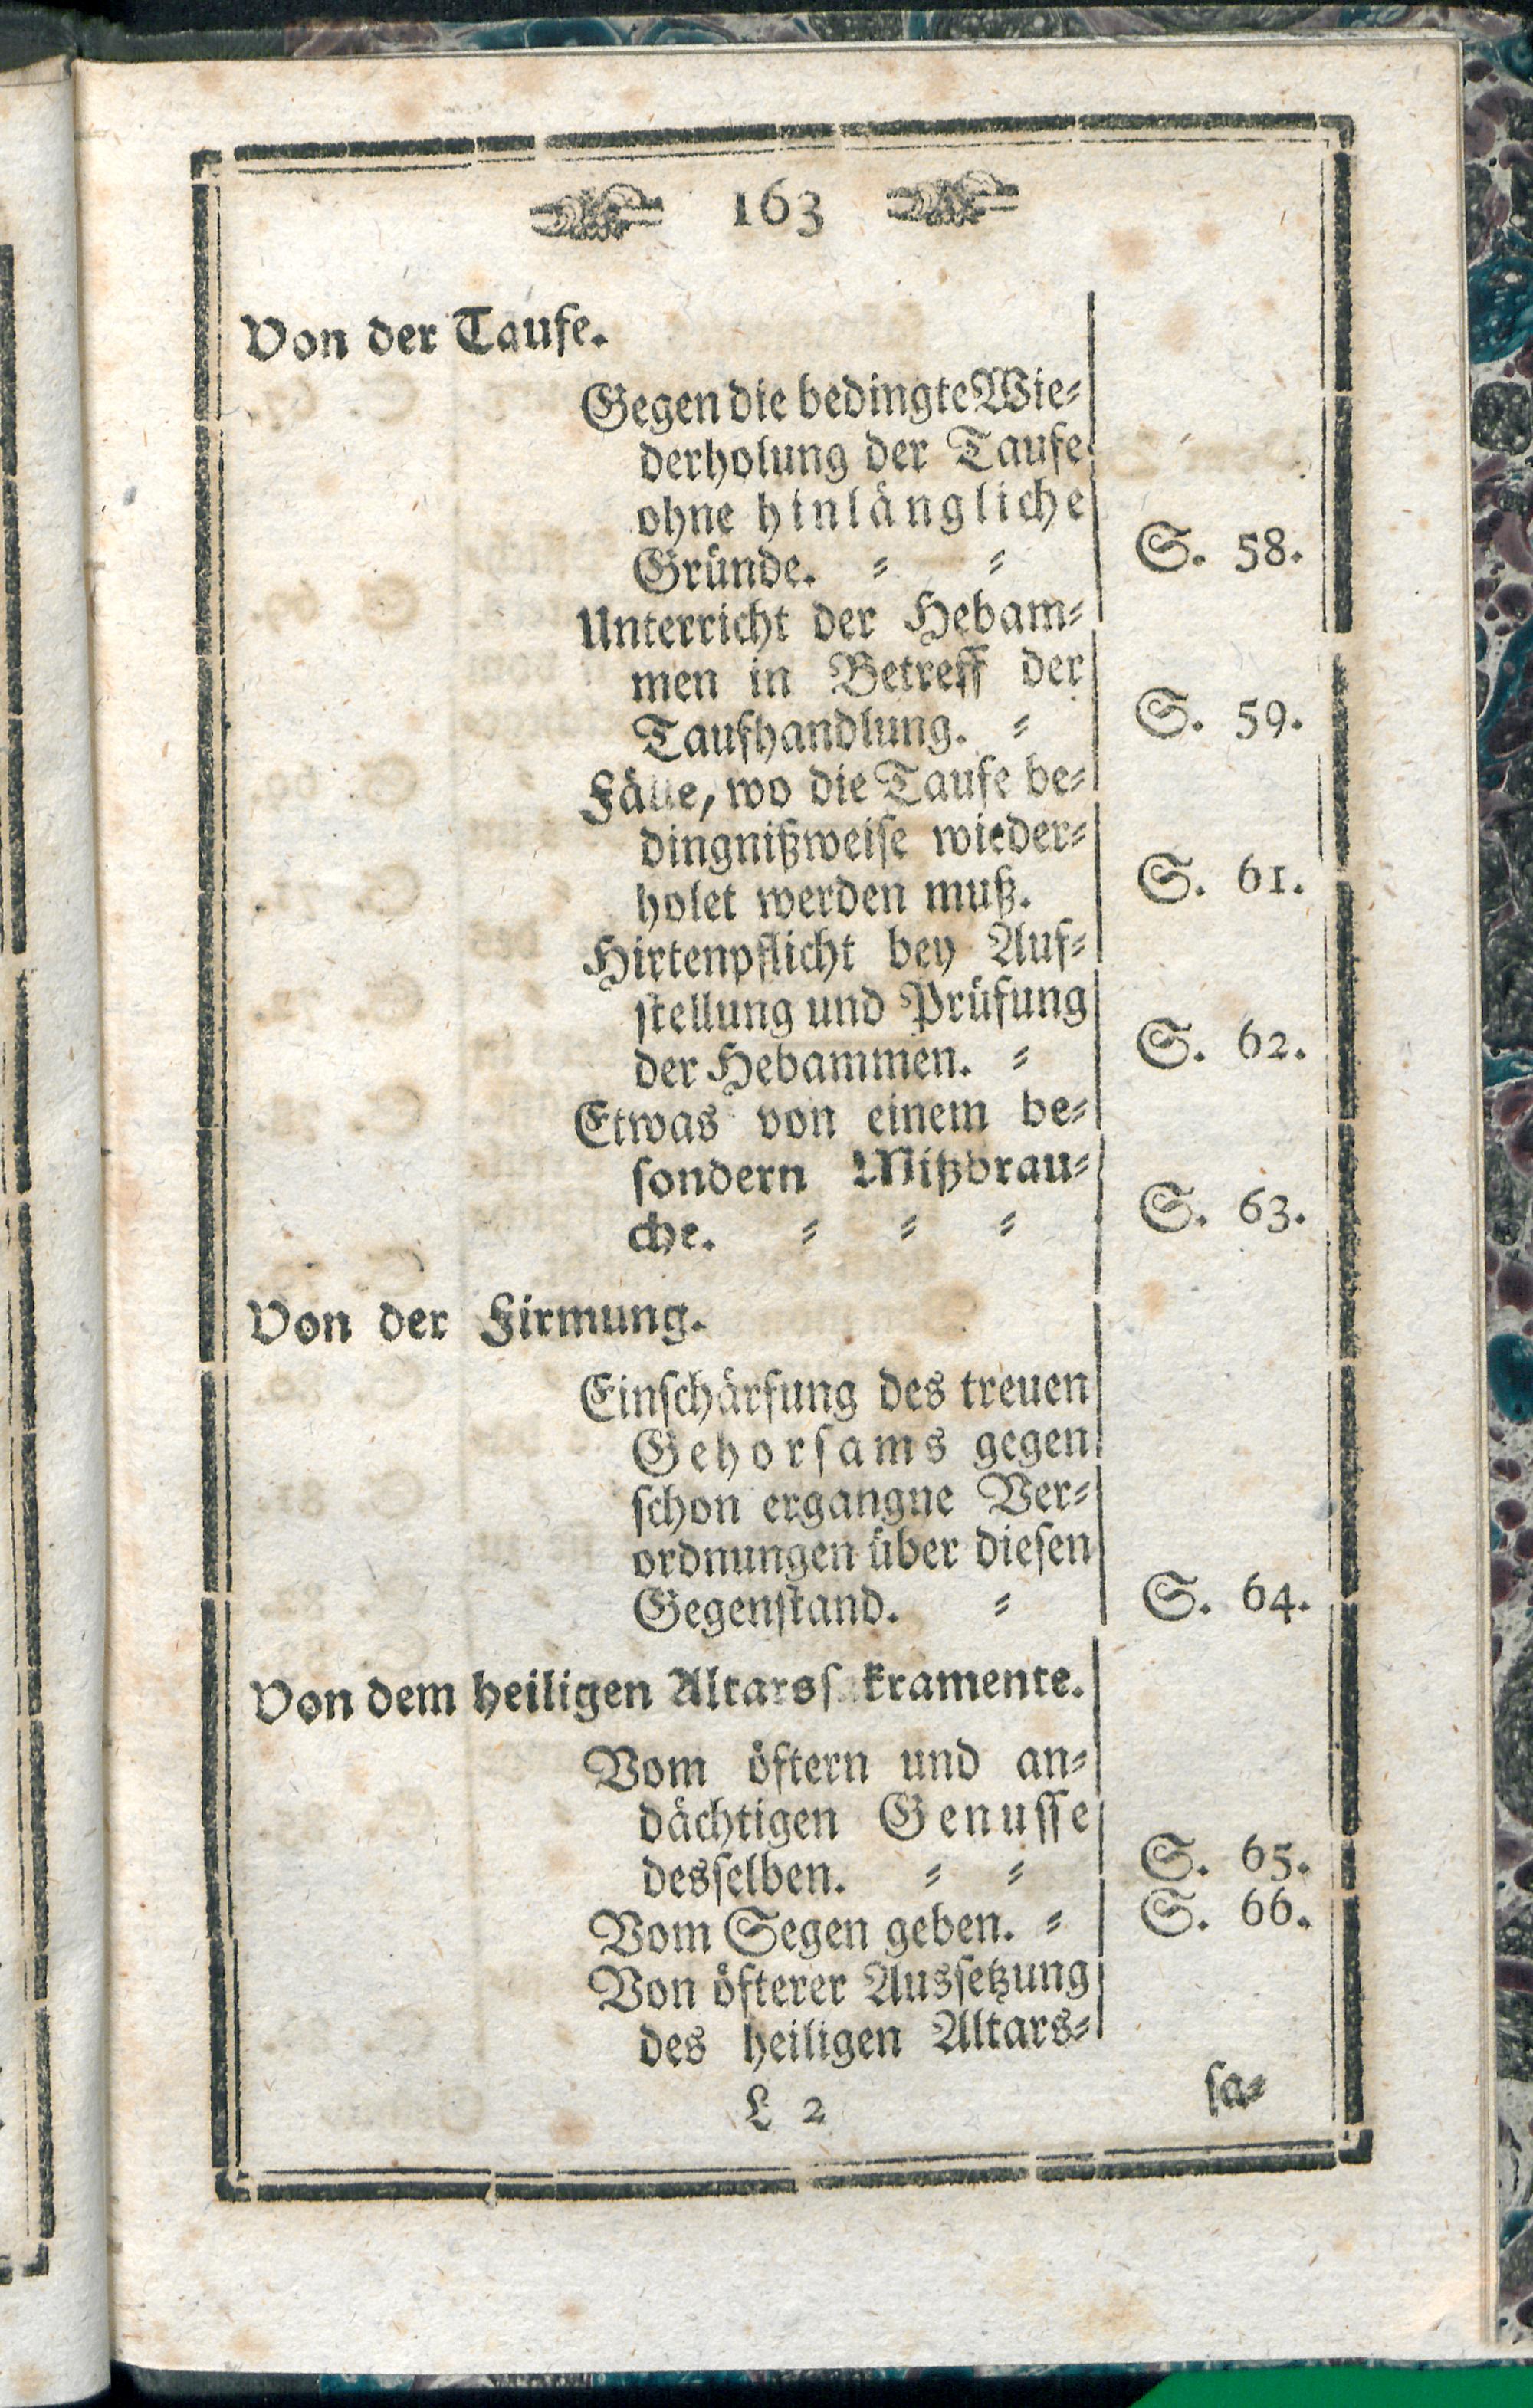 163
Von der Taufe.
Gegen die bedingte Wie⸗
derholung der Taufe
ohne hinlängliche
Gründe. ⸗ ⸗ S. 58.
Unterricht der Hebam⸗
men in Betreff der
Taufhandlung. ⸗ S. 59.
Fälle, wo die Taufe be⸗
dingnißweise wieder⸗
holet werden muß. S. 61.
Hirtenpflicht bey Auf⸗
stellung und Prüfung
der Hebammen. ⸗ S. 62.
Etwas von einem be⸗
sondern Mißbrau⸗
che. ⸗ ⸗ ⸗ S. 63.
Von der Firmung.
Einschärfung des treuen
Gehorsams gegen
schon ergangne Ver⸗
ordnungen über diesen
Gegenstand. ⸗ S. 64.
Von dem heiligen Altarssakramente.
Vom öftern und an⸗
dächtigen Genusse
desselben. ⸗ ⸗ S. 65.
Vom Segen geben. ⸗ S. 66.
Von öfterer Aussetzung
des heiligen Altars⸗
L 2 sa⸗